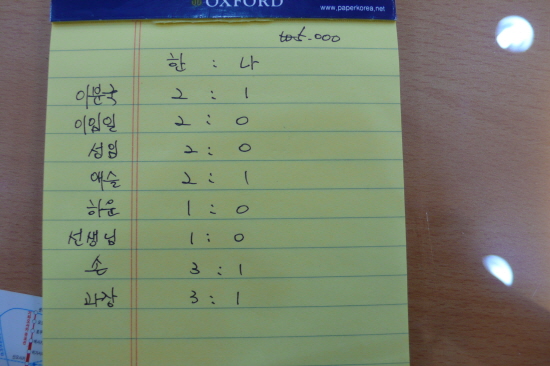 OXFORD
www.paperkorea.net
한 : 나
이문국 2 : 1
이임일 2 : 0
선임 2 : 0
애슬 2 : 1
하운 1 : 0
선생님 1 : 0
손 3 : 1
과장 3 : 1